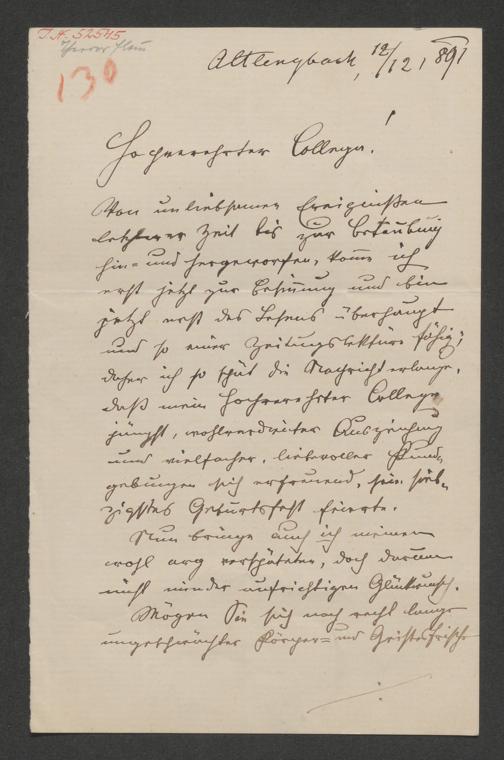 I.N. 52545
130
Altlengbach, 12/12 1891
Hochverehrter College!
Von unliebsamen Ereignißen
letzterer Zeit bis zur Betäubung
hin- und hergeworfen, komme ich
erst jetzt zur Besinnung und bin
jetzt erst des Lesens überhaupt
und so einer Zeitungslektüre fähig;
daher ich so spät die Nachricht erlange,
daß mein hochverehrter College
jüngst, wohlverdienter Auszeichnung
und vielfacher, liebevoller Kund-
gebungen sich erfreuend, sein sieb-
zigstes Geburtsfest feierte.
Nun bringe auch ich meinen
wohl arg verspäteten, doch darum
nicht minder aufrichtigen Glückwunsch.
Mögen Sie sich noch recht lange
ungeschwächter Körper- und Geistesfrische